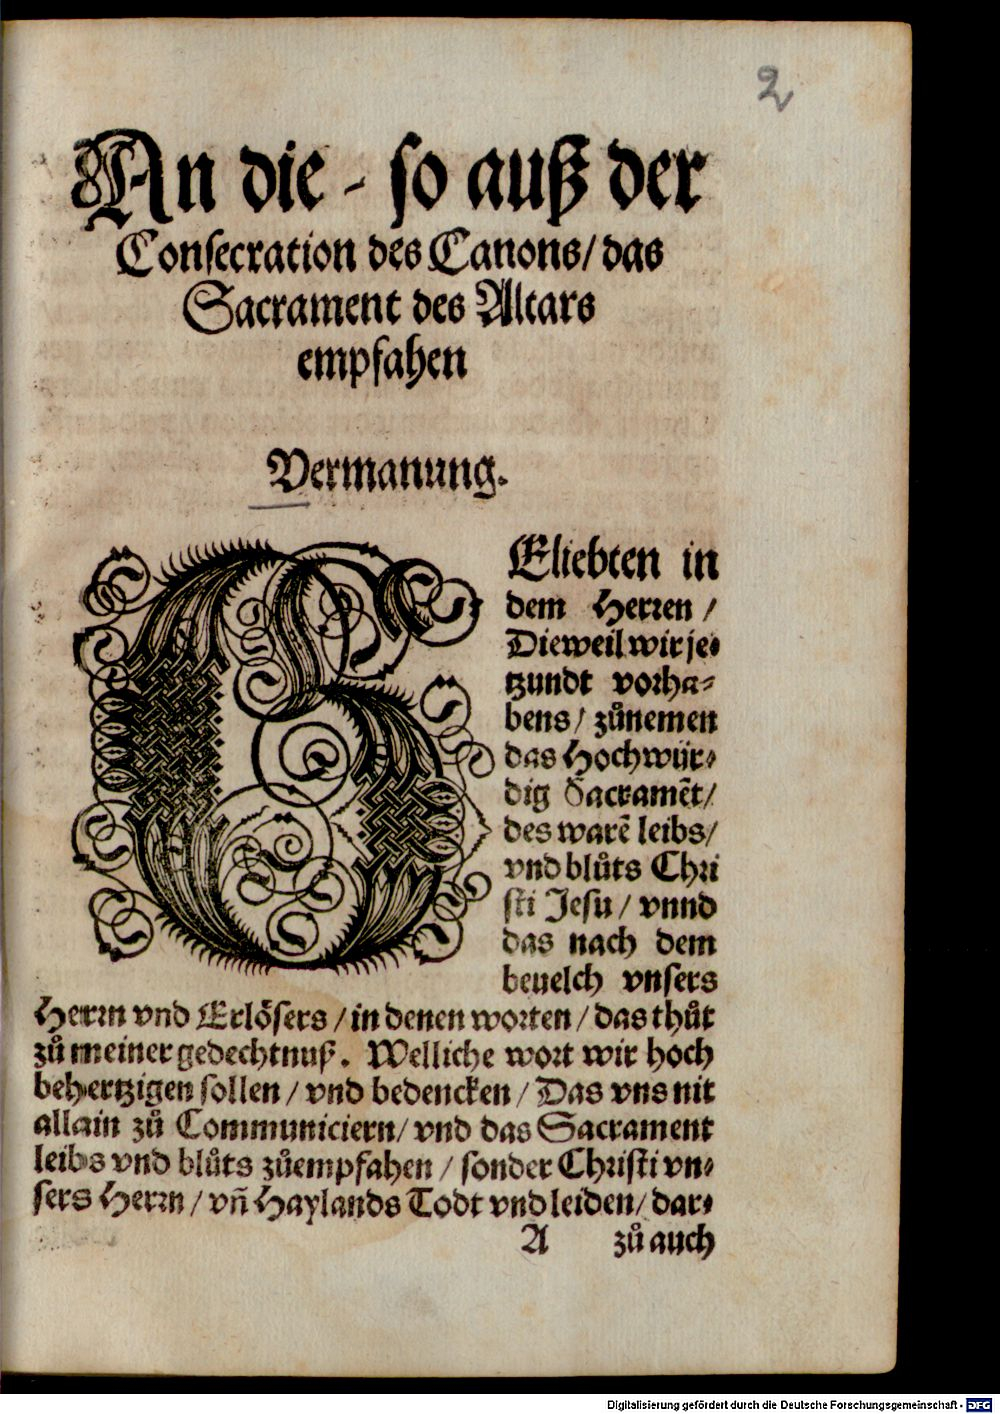 2
An die - so auß der
Consecration des Canons/ das
Sacrament des Altars
empfahen
Vermanung.
GEliebten in
dem Herren /
Dieweil wir je⸗
tzundt vorha⸗
bens / zůnemen
das Hochwür⸗
dig Sacramẽt/
des warẽ leibs/
vnd blůts Chri
sti Jesu / vnnd
das nach dem
beuelch vnsers
Herrn vnd Erlösers / in denen worten / das thůt
zů meiner gedechtnuß. Welliche wort wir hoch
behertzigen sollen / vnd bedencken / Das vns nit
allain zů Communiciern/ vnd das Sacrament
leibs vnd blůts zůempfahen / sonder Christi vn⸗
sers Herrn / vñ Haylands Todt vnd leiden/ dar⸗
A zů auch
Digitalisierung gefördert durch die Deutsche Forschungsgemeinschaft - DFG